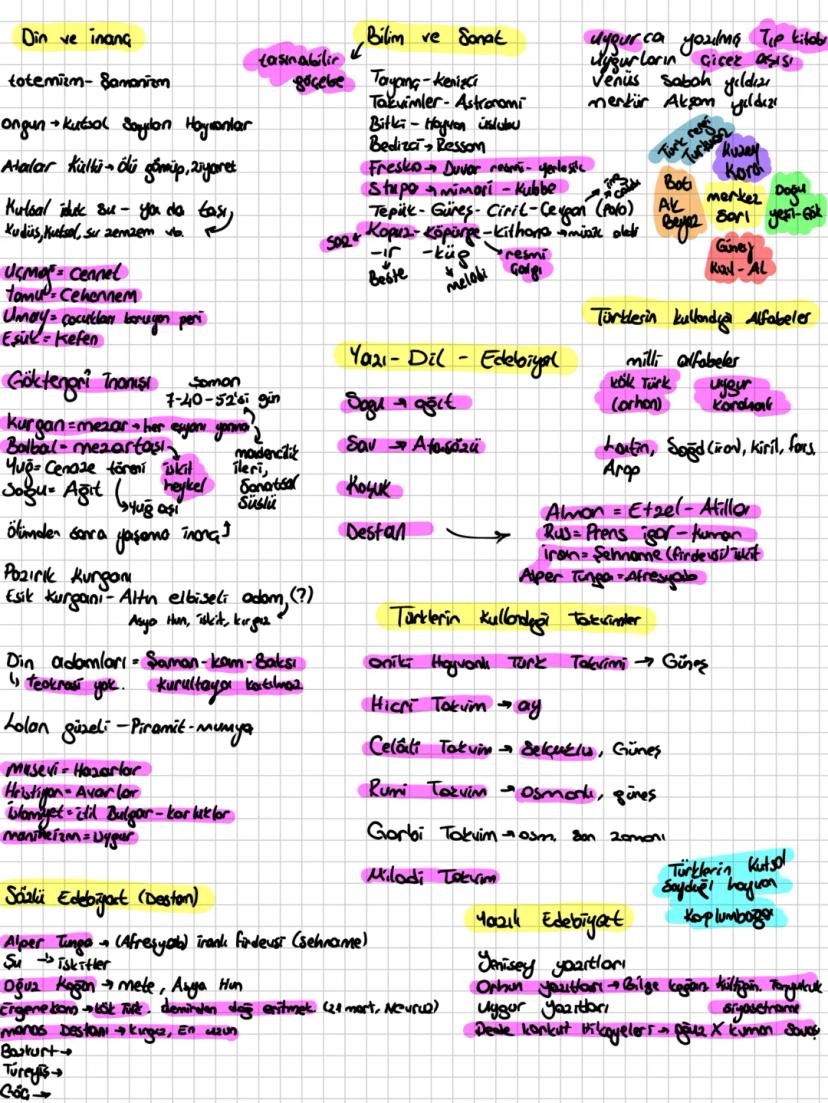 Din ve inanç
totemizm - Şamanizm
ongun → kutsal sayılan Hayvanlar
Atalar Kültü → Ölü gömüp, ziyaret
Kutsal ıduk su - ya da taşı
Kudüs, kutsal, su zemzem vb.
Uçmağ = Cennet
tamu = Cehennem
Umay = çocukları koruyan peri
Eşük = Kefen
Göktengri İnanışı
Şaman
7-40-52'si gün
Kurgan = mezar → her eşyanı yanına
Balbal = mezartaşı
Yuğ = Cenaze töreni
iskit
heykel
madencilik
ileri,
Sanatsal
Süslü
Sagu = Ağıt
Yuğ aşı
Ölümden sonra yaşama inanç
Pazırık Kurganı
Esik Kurganı - Altın elbiseli adam (?)
Asya Hun, iskit, kırgız
Din adamları = Şaman-kam-Baksı
teokrasi yok. kurultaya katılmaz
Lolan güzeli - Piramit - mumya
Musevi = Hazarlar
Hristiyan = Avarlar
İslamiyet = itil Bulgar - karluklar
maniheizm = uygur
Sözlü Edebiyat (Destan)
Alper Tunga → (Afresyab) iranlı firdevsi (sehname)
Şu → iskitler
Oğuz Kağan → mete, Asya Hun
Ergenekon → kök Türk. demirden dağ eritmek (21 mart, Nevruz)
manas Destanı → kırgız, En uzun
Bozkurt →
Türeyiş →
Göç →
Bilim ve Sanat
taşınabilir
göçebe
Tayanç - Kenizçi
Takvimler - Astronomi
Bitki - Hayvan üslubu
Bedizci → Ressam
Fresko → Duvar resmi - yerleşik
Stupa → mimari - kubbe
Tepük - Güreş - Cirit - Çevgan (Polo)
saz Kopuz - köpürge - kithana → müzik aleti
-ır -küğ
Beste melodi
resmi
çalgı
Yazı - Dil - Edebiyat
Sagu → ağıt
Sav → Atasözü
Koşuk
Destan
Alman = Etzel - Atilla
Rus = Prens igor - kuman
iran = Şehname (firdevsi) iskit
Alper Tunga = Afresyab
Türklerin kullandığı takvimler
oniki Hayvanlı Türk Takvimi → Güneş
Hicri Takvim → ay
Celâlî Takvim → Selçuklu, Güneş
Rumi Takvim → osmanlı, güneş
Garbi Takvim → osm. son zamanı
Miladi Takvim
uygurca yazılmış Tıp kitabı
uygurların Çiçek aşısı
Venüs sabah yıldızı
merkür Akşam yıldızı
Türk rengi
Turkuaz
Kuzey
Kara
Batı
AK
Beyaz
merkez
Sarı
Doğu
yeşil-Gök
Güney
Kızıl - AL
Türklerin kullandığı Alfabeler
milli alfabeler
kök Türk
(orhon)
uygur
Karahanlı
Latin, Soğd (iran), kiril, fars,
Arap
Türklerin kutsal
saydığı hayvan
Kaplumbağa
Yazılı Edebiyat
Yenisey yazıtları
Orhun yazıtları → Bilge kağan. kültigin. Tonyukuk
uygur yazıtları
siyasetname
Dede korkut Hikayeleri → oğuz X kuman savaşı